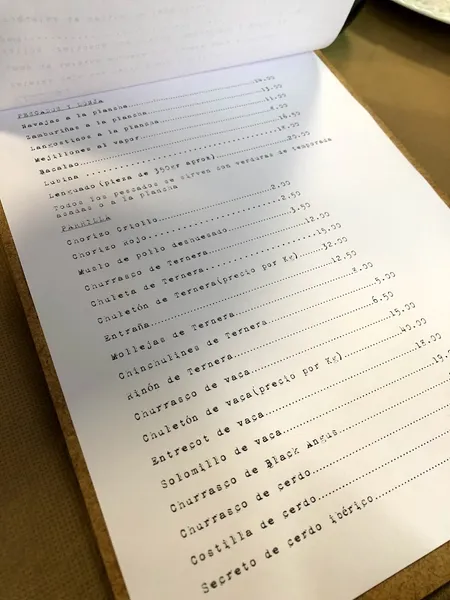 PESCADOS Y LONJA
Navajas a la plancha
Zamburiñas a la plancha 13.00
Langostinos a la plancha 11.00
Mejillones al vapor 8.00
Bacalao 16.00
Lubina 18.00
Lenguado (pieza de 350gr aprox)
Todos los pescados se sirven con verduras de temporada
asadas o a la plancha
PARRILLA
Chorizo Criollo 2.00
Chorizo Rojo 2.50
Muslo de pollo deshuesado 3.50
Churrasco de Ternera 12.00
Chuleta de Ternera 15.00
Chuletón de Ternera(precio por Kg) 32.00
Entraña 12.50
Mollejas de Ternera 8.00
Chinchulines de Ternera 5.00
Riñón de Ternera 6.50
Churrasco de vaca 15.00
Chuletón de vaca(precio por Kg) 40.00
Entrecot de vaca 18.00
Solomillo de vaca
Churrasco de Black Angus
Churrasco de cerdo
Costilla de cerdo
Secreto de cerdo ibérico